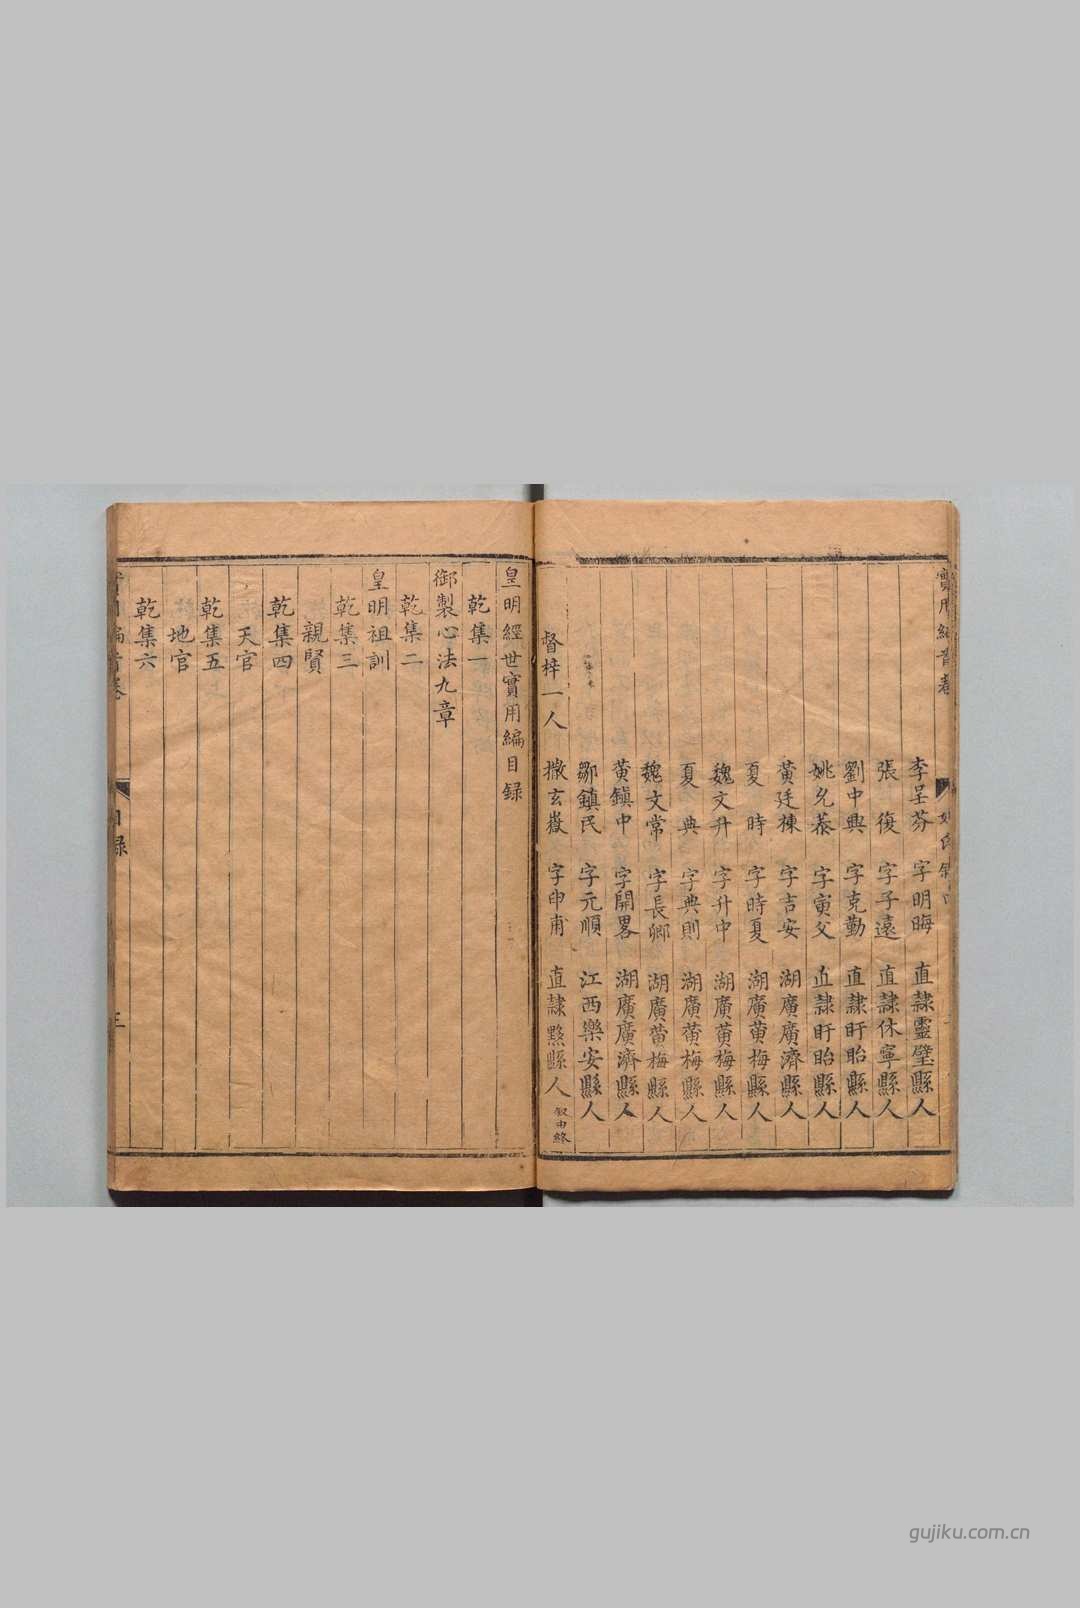 李呈芬 字明晦 直隸靈璧縣人
張復 字子遠 直隸休寧縣人
劉中興 字克勤 直隸盱眙縣人
姚允恭 字寅父 直隸盱眙縣人
黃廷棟 字吉安 湖廣廣濟縣人
夏時 字時夏 湖廣黃梅縣人
魏文升 字升中 湖廣黃梅縣人
夏典 字典則 湖廣黃梅縣人
魏文常 字長卿 湖廣黃梅縣人
黃鎮中 字開畧 湖廣廣濟縣人
鄒鎮民 字元順 江西樂安縣人
督梓一人 撒玄嶽 字申甫 直隸黟縣人 叙由終
皇明經世實用編目録
乾集一
御製心法九章
乾集二
皇明祖訓
乾集三
親賢
乾集四
天官
乾集五
地官
乾集六
目録
三
gujiku.com.cn